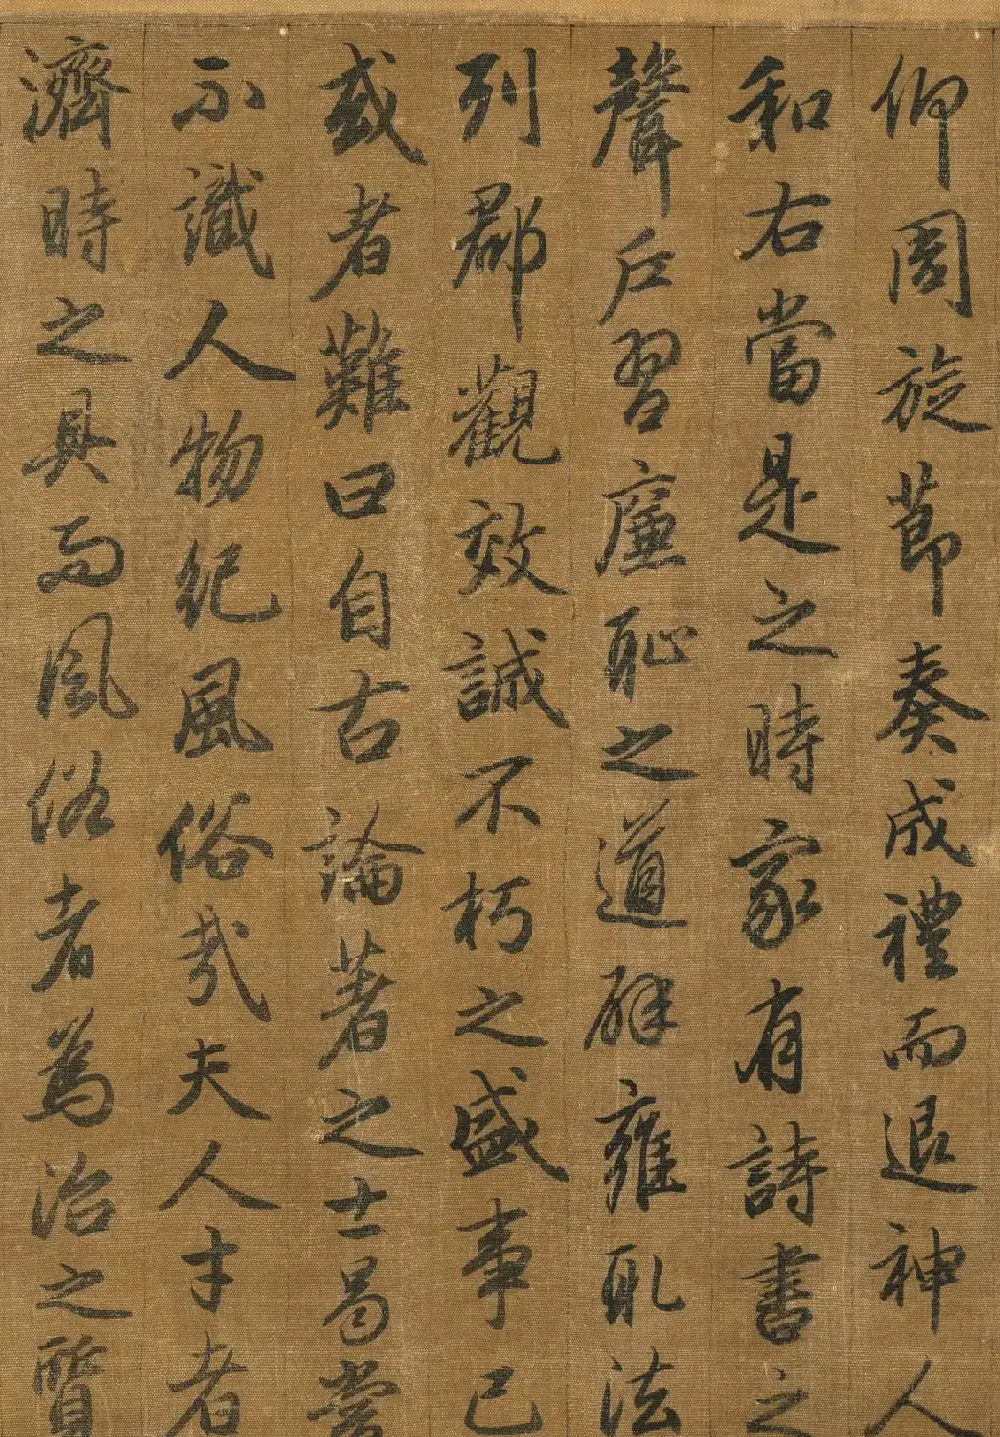 仰周旋節奏成禮而退神人
和右當是之時家有詩書之
聲戶習廉恥之道辟雍取法
列郡觀效誠不朽之盛事已
或者難曰自古論著之士曷嘗
不識人物紀風俗哉夫人才者
濟時之具而風俗者為治之質